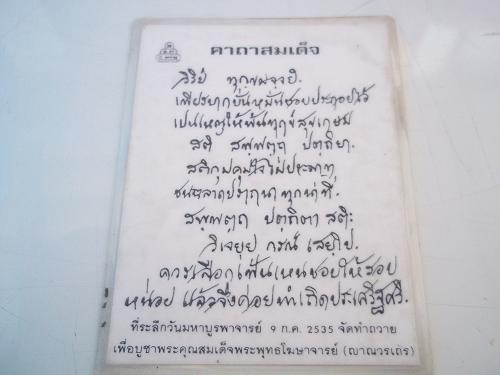 คาถาสมเด็จ
วิริย ทุกขมจฺเจติ.
เพียรยากบั่นหมั่นชอบประกอบไว้
เป็นเหตุให้พ้นทุกข์สุขเกษม
สติ สพฺพตฺถ ปตฺถิยา.
สติคุมคุมใจไม่ประมาท
ชนฉลาดปรารถนาทุกนาที.
สพฺพตฺถ ปตฺถิตา สติ
วิเจยฺย กรณํ เสยฺโย.
ควรเลือกเฟ้นเหนชอบให้รอบ
หน่อย แล้วจึ่งค่อยทำเกิดประเสริฐศรี.
ที่ระลึกวันมหาบูรพาจารย์ 9 ก.ค. 2535 จัดทำถวาย
เพื่อบูชาพระคุณสมเด็จพระพุทธโฆษาจารย์ (ญาณวรเถร)